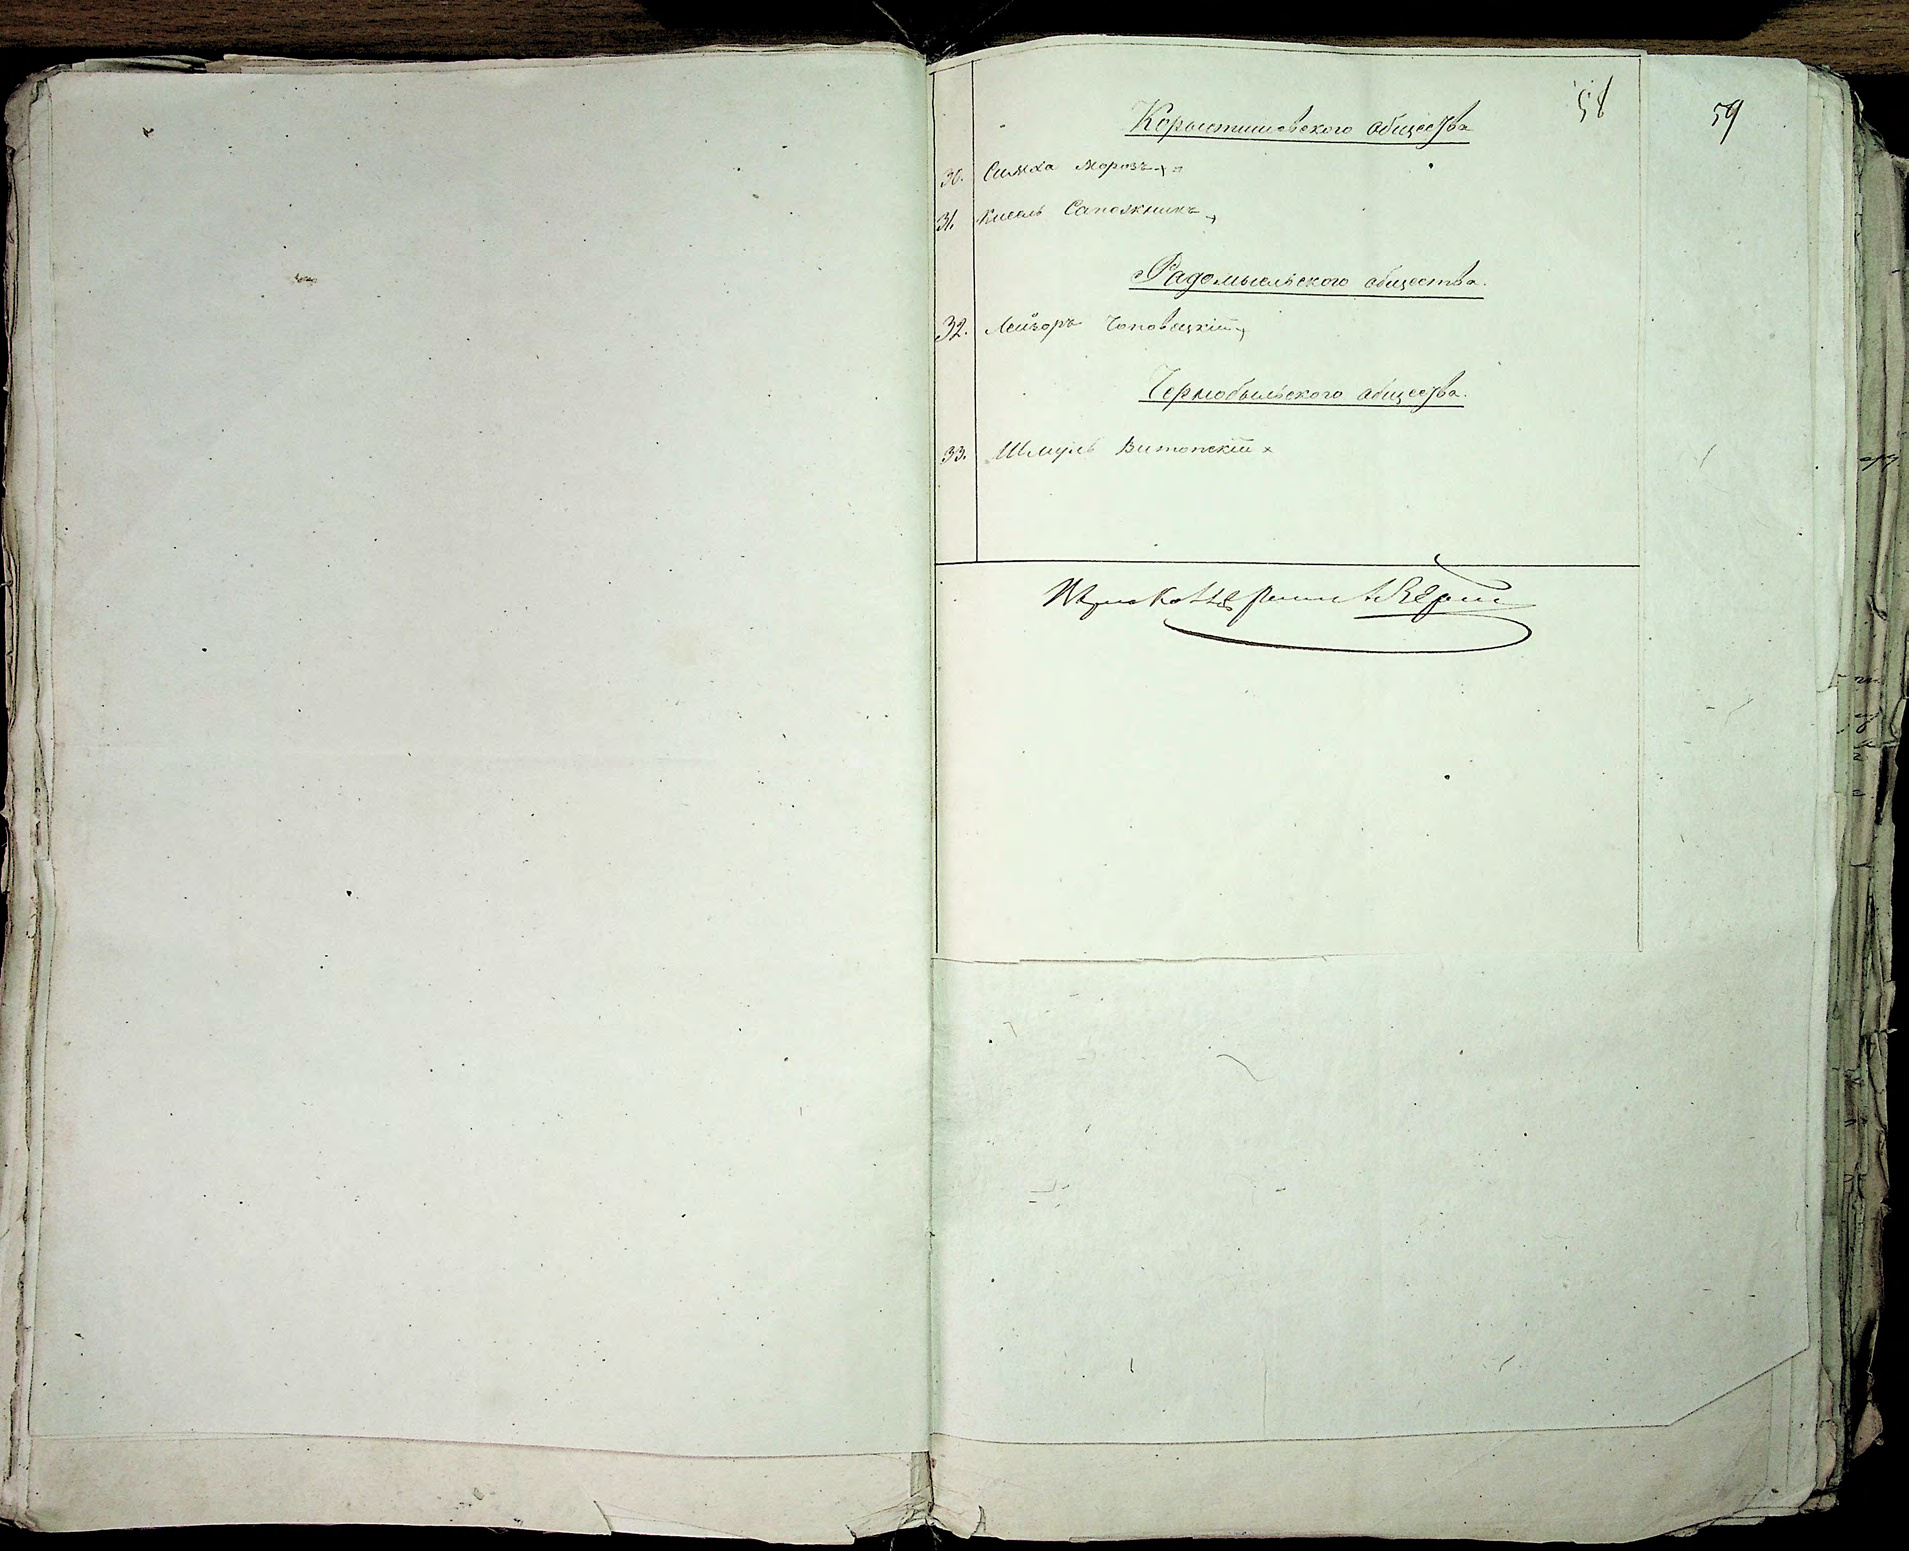 58
59
Коростишевского общества
30. Симха Морозъ
31. Кисель Сапожникъ
Радомысльского общества.
32. Лейзоръ Чоповецкій
Чернобыльского общества.
33. Шмуль Витопскій